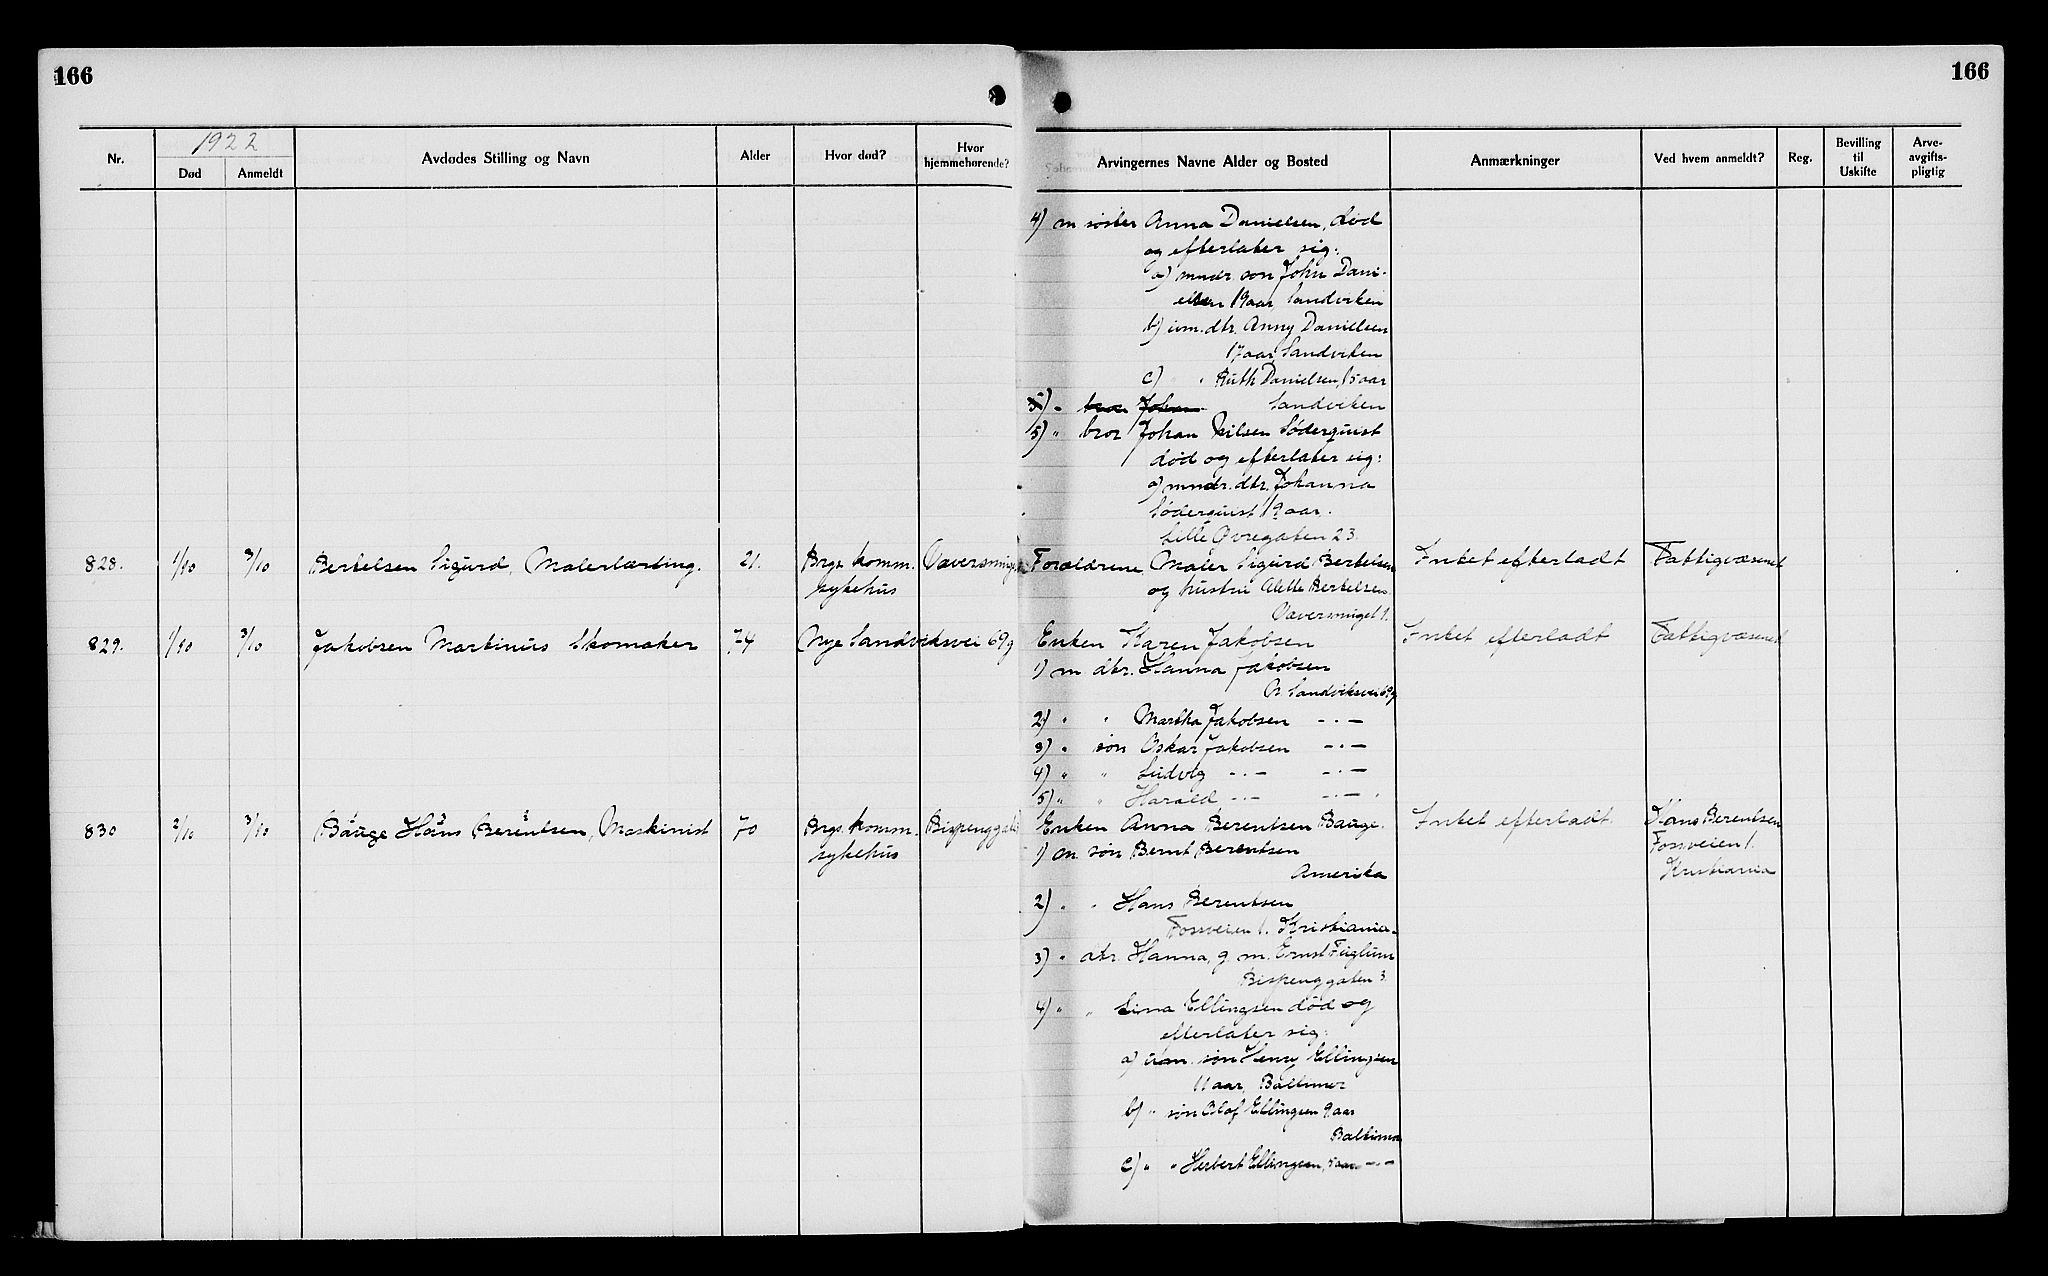 166
166
1922
Nr.
Død
Anmeldt
Avdødes Stilling og Navn
Alder
Hvor død?
Hvor
hjemmehørende?
Arvingernes Navne Alder og Bosted
Anmærkninger
Ved hvem anmeldt?
Reg.
Bevilling
til
Uskifte
Arve-
avgifts-
pligtig
4) m søster Anna Danielsen, død
og efterlater sig:
a) mndr. søn John Dani-
elsen 19 aar Sandviken
b) um. dtr. Anny Danielsen
17 aar Sandviken
c) " Ruth Danielsen, 15 aar
Sandviken
5) " bror Johan
5) " bror Johan Nilsen Söderquist
død og efterlater sig:
a) mndr. dtr. Johanna
Söderquist 19 aar.
Lille Øvregaten 23.
828. 1/10 3/10 Bertelsen Sigurd, Malerlærling. 21. Brgs komm. Vaversmuget
sykehus
Forældrene, Maler Sigurd Bertelsen
og hustru Alette Bertelsen
Vaversmuget 1.
Intet efterladt Fattigvæsenet
829. 1/10 3/10 Jakobsen Martinus Skomaker 74 Nye Sandviksvei 69g
Enken Karen Jakobsen Intet efterladt Fattigvæsenet
1) m dtr. Hanna Jakobsen
N. Sandviksvei 69g
2) " " Martha Jakobsen -"-
3) " søn Oskar Jakobsen -"-
4) " " Ludvig -"- -"-
5) " " Harald -"- -"-
830 2/10 3/10 Bauge Hans Berentsen, Maskinist 70 Brgs. komm. Bispenggate
sykehus
Enken Anna Berentsen Bauge. Intet efterladt. Hans Berentsen
1) m søn Bernt Berentsen Fossveien 1.
Amerika Kristiania
2) " " Hans Berentsen
Fossveien 1. Kristiania
3) " dtr. Hanna, g. m. Ernst Fuglum
Bispenggaten 3
4) " " Lina Ellingsen død og
efterlater sig:
a) um. søn Henry Ellingsen
11 aar, Baltimor
b) " søn Olof Ellingsen 9 aar
Baltimor
c) " " Herbert Ellingsen, 5 aar -"-